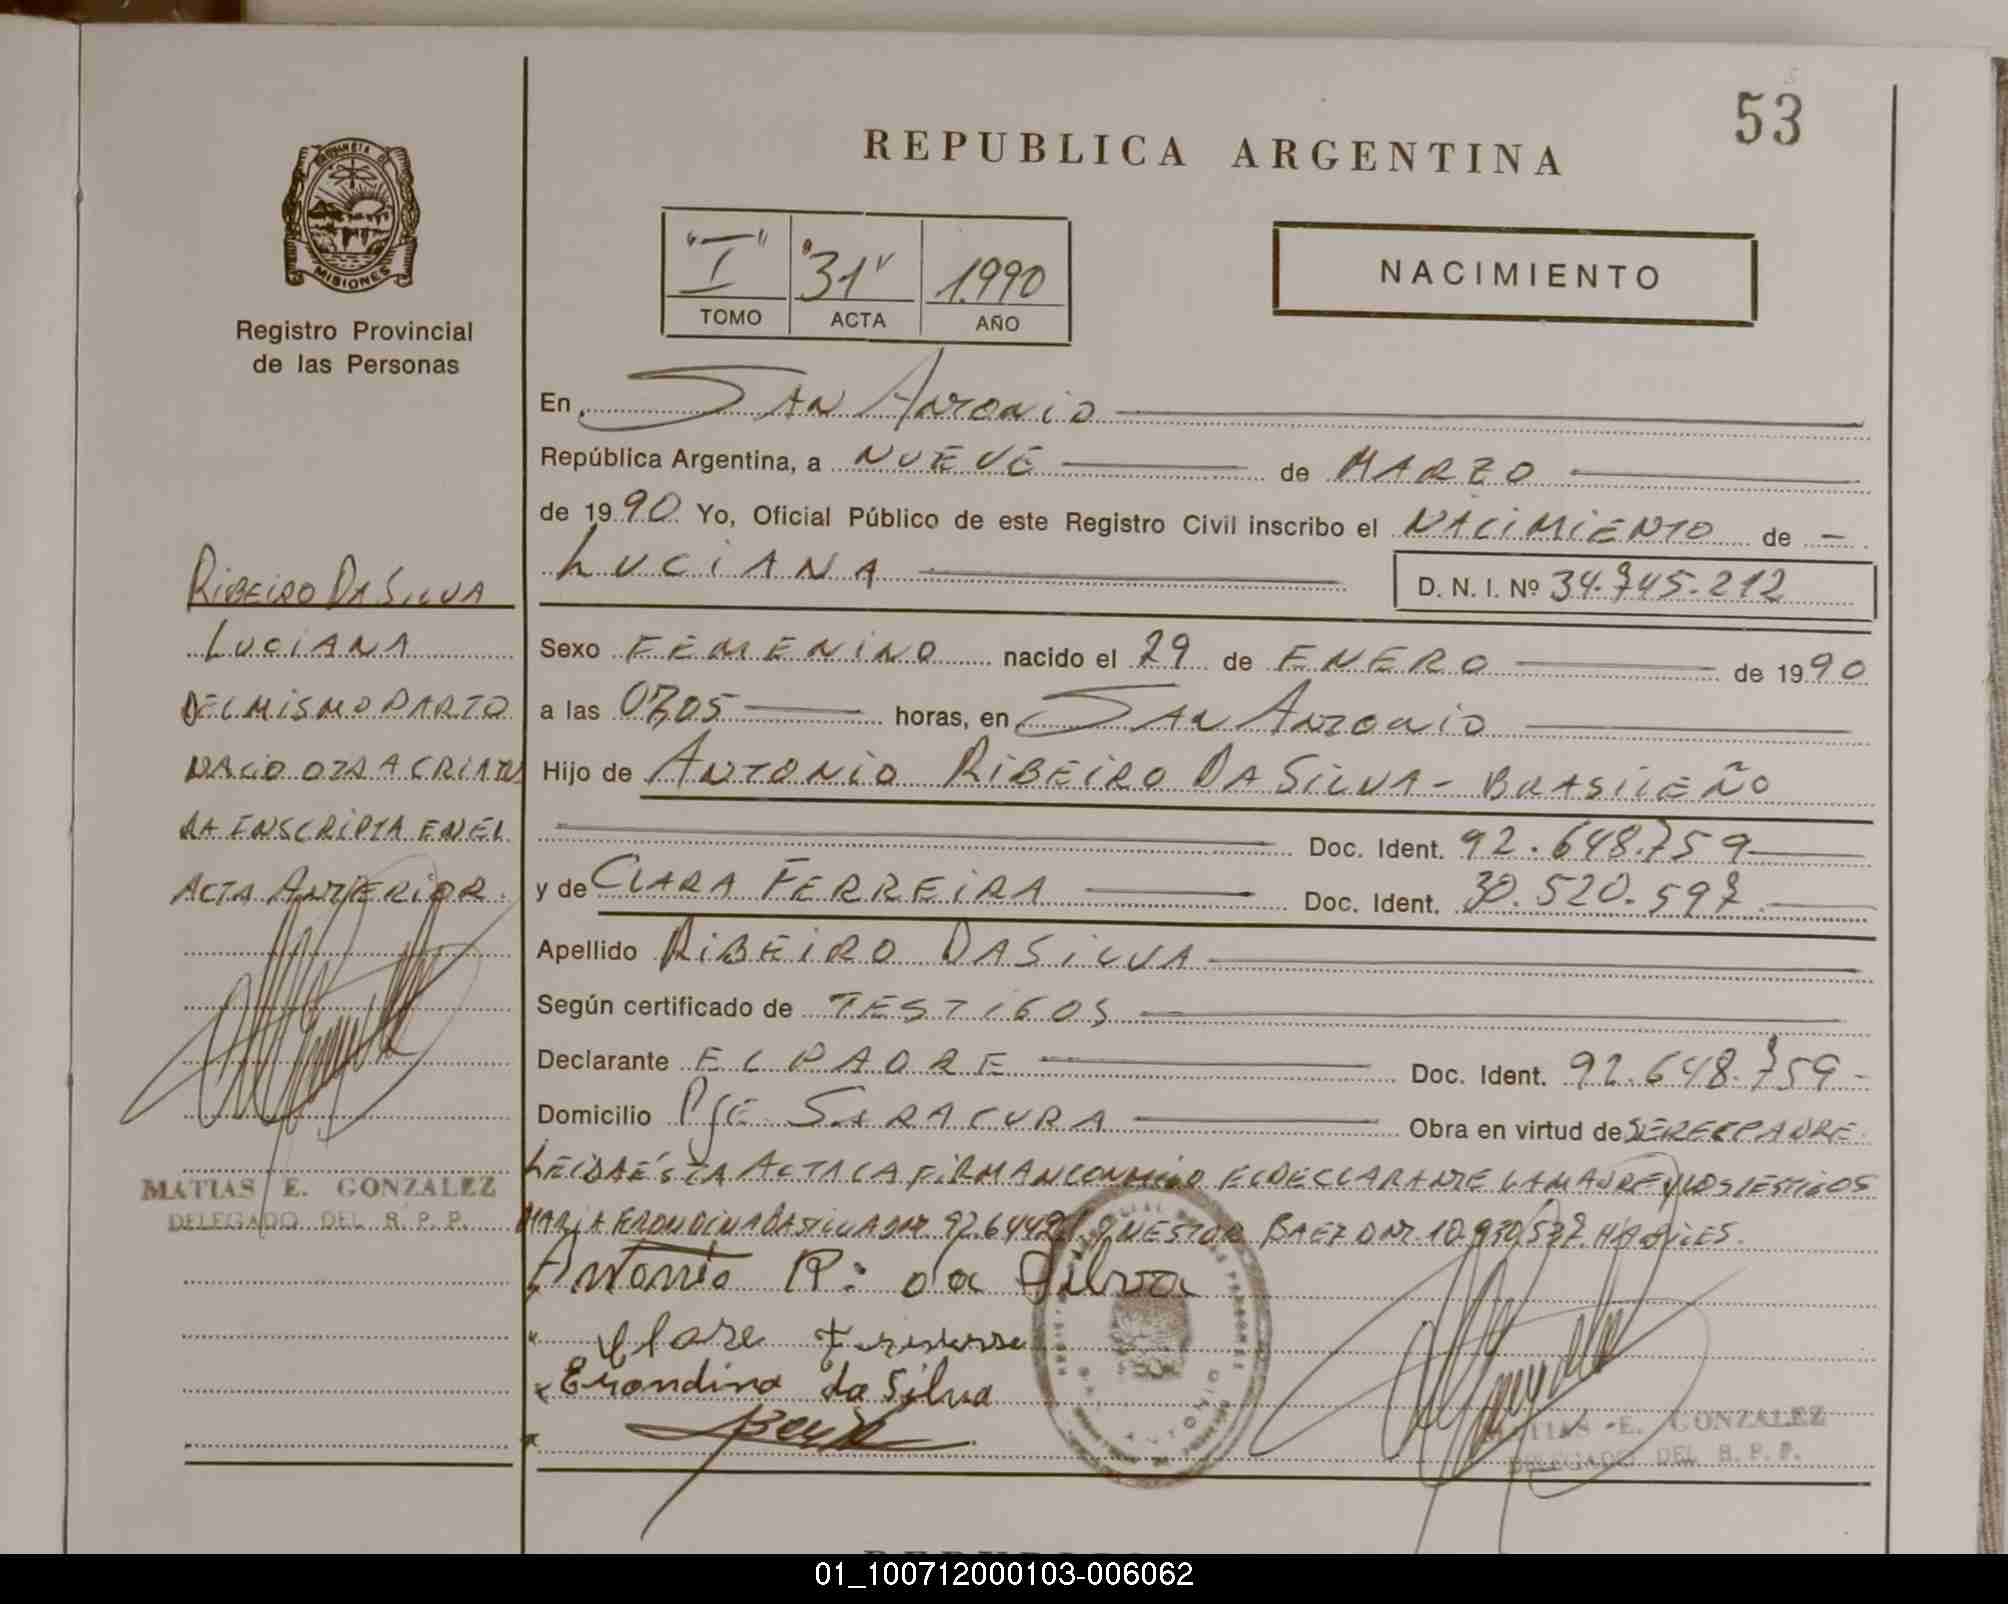 53
REPUBLICA ARGENTINA
PROVINCIA DE
MISIONES
Registro Provincial
de las Personas
"I" "31" 1.990
TOMO ACTA AÑO
NACIMIENTO
En San Antonio
República Argentina, a NUEVE de MARZO
de 1990 Yo, Oficial Público de este Registro Civil inscribo el NACIMIENTO de -
LUCIANA D. N. I. Nº 34.745.212
Sexo FEMENINO nacido el 29 de ENERO de 1990
a las 07,05 horas, en San Antonio
Hijo de ANTONIO RIBEIRO DA SILVA - BRASILEÑO
Doc. Ident. 92.648.759
y de CLARA FERREIRA Doc. Ident. 30.520.597
Apellido RIBEIRO DA SILVA
Según certificado de TESTIGOS
Declarante EL PADRE Doc. Ident. 92.648.759 -
Domicilio Pje SARACURA Obra en virtud de SER EL PADRE
LEIDA ÉSTA ACTA LA FIRMAN CONMIGO EL DECLARANTE LA MADRE Y LOS TESTIGOS
MARIA ERONDINA DA SILVA DNI 92.644 NESTOR BAEZ DNI 10.970.537 HABILES.
Antonio R. da Silva
Erondina da Silva
MATIAS E. GONZALEZ
DELEGADO DEL R. P. P.
RIBEIRO DA SILVA
LUCIANA
DEL MISMO PARTO
NACIO OTRA CRIATU
RA INSCRIPTA EN EL
ACTA ANTERIOR.
MATIAS E. GONZALEZ
DELEGADO DEL R. P. P.
01_100712000103-006062